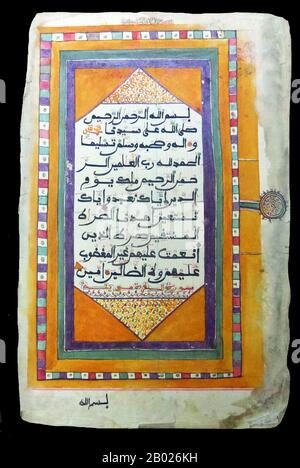 بسم الله الرحمن الرحيم
صلى الله على سيدنا محمد
وءاله وصحبه وسلم تسليما
الحمد لله رب العلمين الر
حمن الرحيم ملك يوم
الدين اياك نعبد واياك
نستعين اهدنا الصراط
المستقيم صراط الذين
أنعمت عليهم غير المغضوب
عليهم ولا الضالين امين
بسم الله
alamy
Image ID: 2B026KH
www.alamy.com